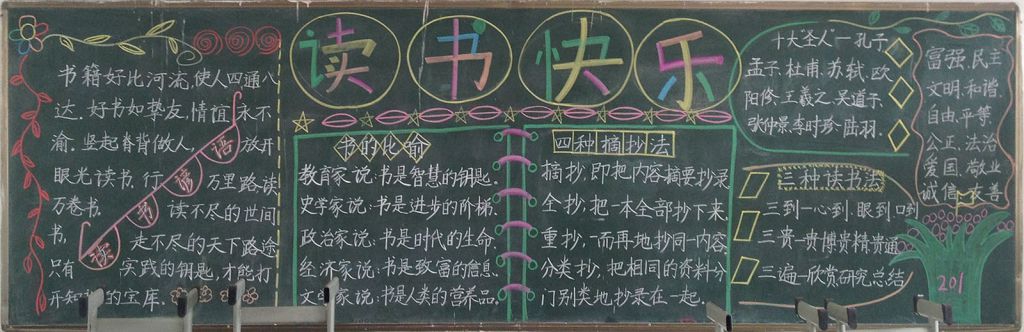 读书快乐
书籍好比河流,使人四通八
达.好书如挚友,情谊永不
渝.竖起脊背做人,放开
眼光读书.行万里路读
万卷书.读不尽的世间
书,走不尽的天下路途
只有实践的钥匙,才能打
开知识的宝库.
书的化命
教育家说:书是智慧的钥匙.
史学家说:书是进步的阶梯.
政治家说:书是时代的生命.
经济家说:书是致富的信息.
文学家说:书是人类的营养品.
四种摘抄法
摘抄:即把内容摘要抄录
全抄:把一本全部抄下来.
重抄:一而再地抄同一内容
分类抄:把相同的资料分
门别类地抄录在一起.
十大"圣人"一孔子
孟子.杜甫.苏轼.欧
阳修.王羲之.吴道子.
张仲景.李时珍.陆羽.
三种读书法
三到一心到.眼到.口到
三贵一贵博贵精贵通
三遍一欣赏研究总结
富强.民主
文明.和谐.
自由.平等.
公正.法治
爱国.敬业
诚信.友善
201